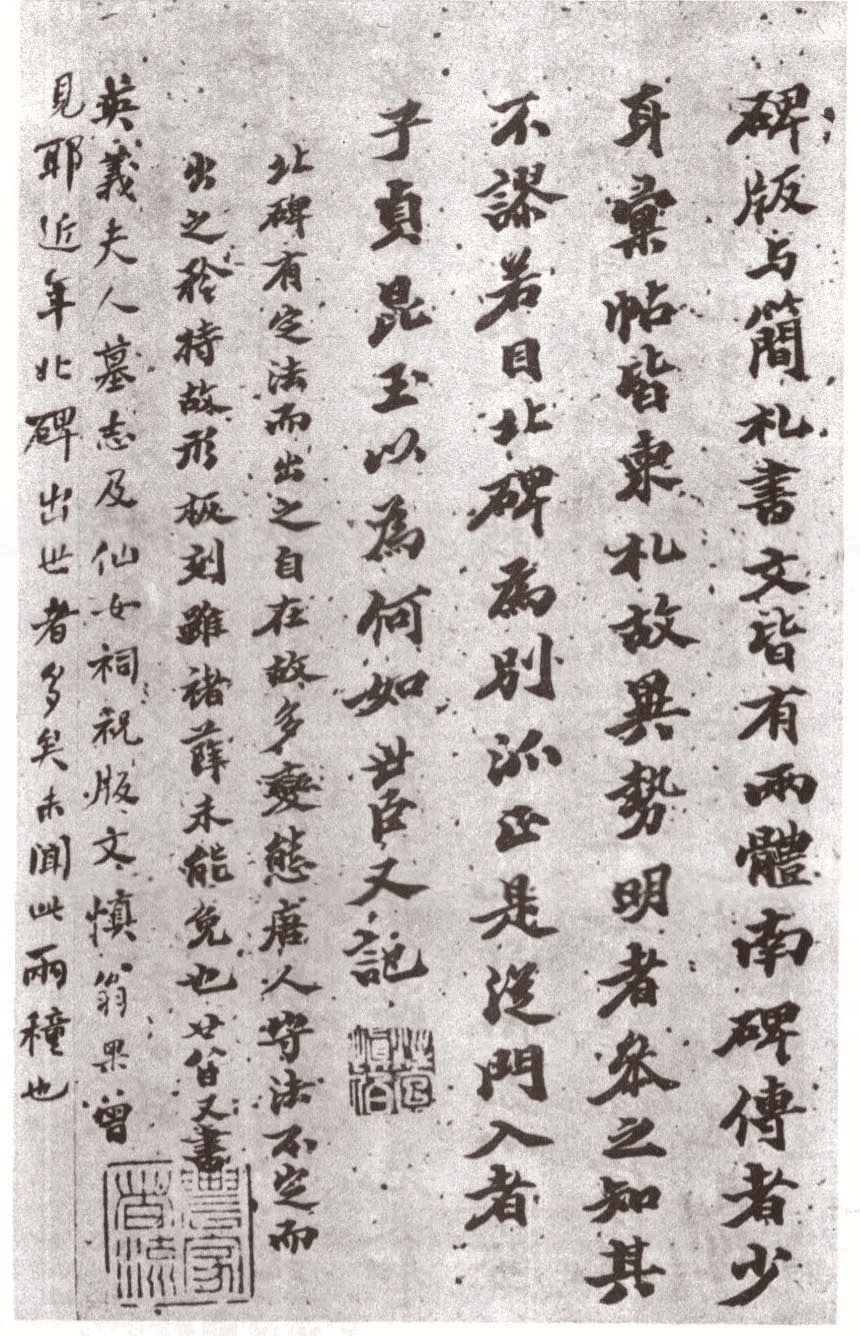 碑版与簡札書文皆有兩體南碑傳者少
身彙帖皆柬札故異勢明者叅之知其
不謬若目北碑為別派正是從門入者
子貞昆玉以為何如世臣又記
北碑有定法而出之自在故多變態唐人守法不定而
出之矜持故形板刻雖褚薛未能免也廿八日又書
英義夫人墓志及仙女祠祝版文慎翁果曾
見耶近年北碑出世者多矣未聞此兩種也
世臣慎伯
農家者流